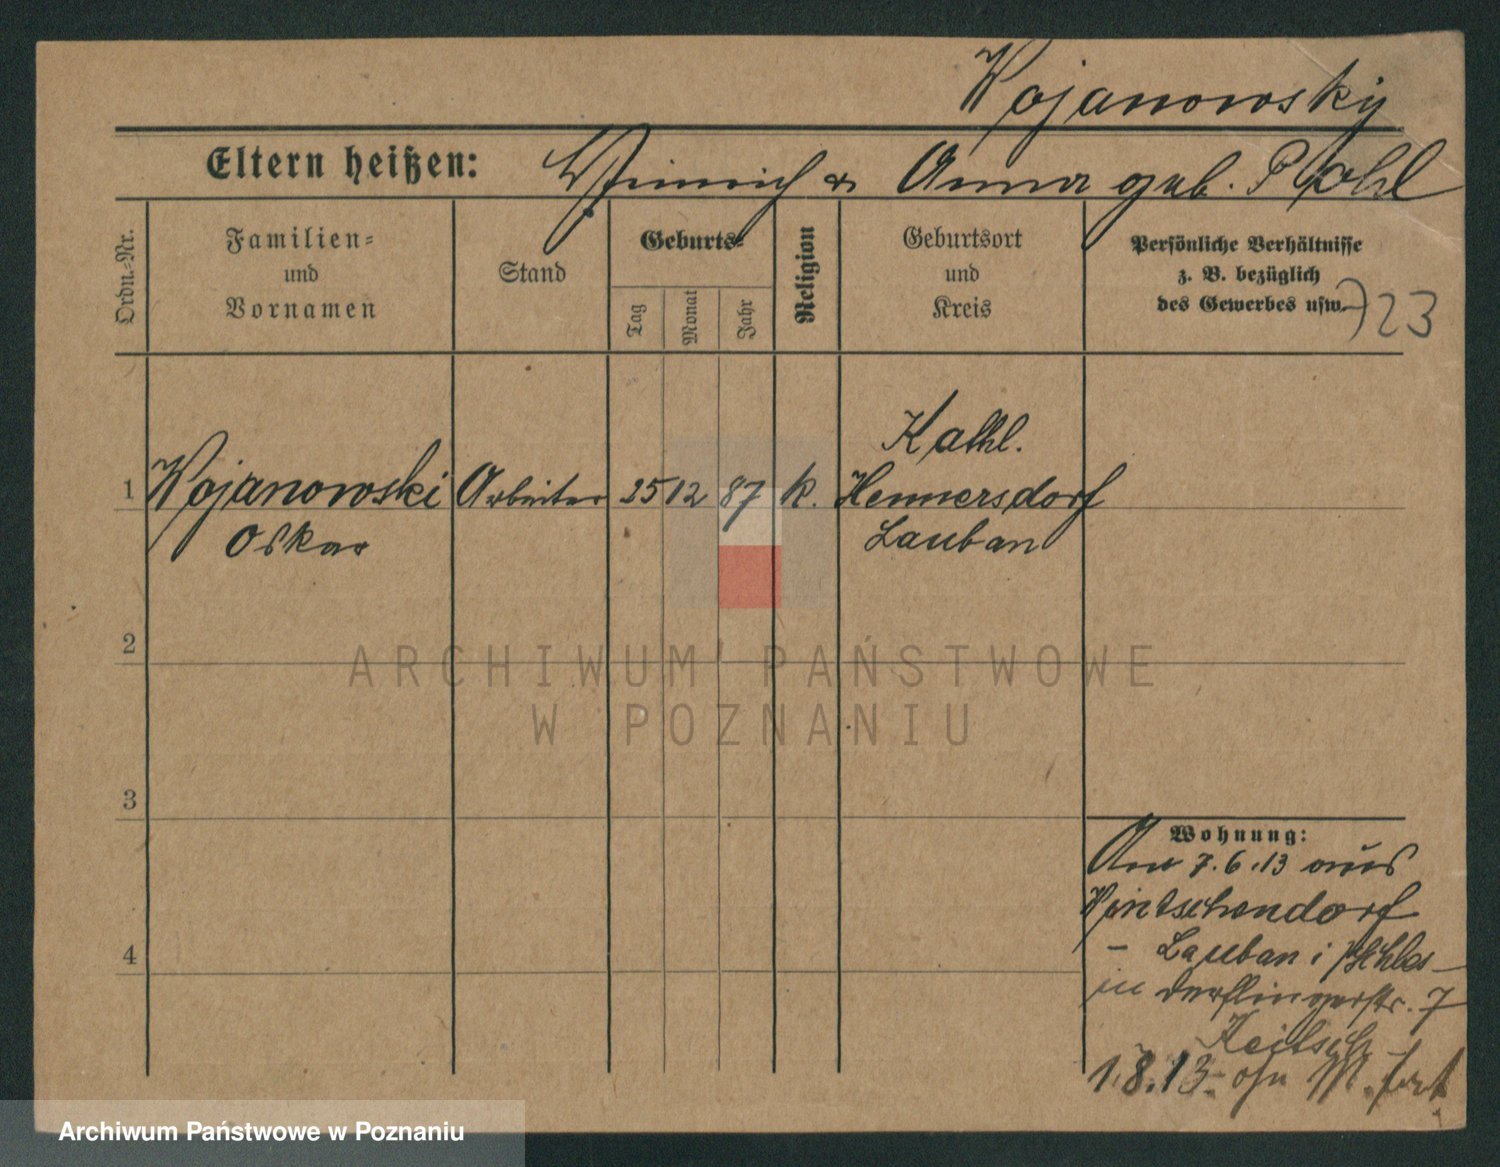 Wojanowsky
Eltern heißen: Heinrich & Anna geb. Pohl
Ordn.-Nr.
Familien-
und
Vornamen
Stand
Geburts-
Tag
Monat
Jahr
Religion
Geburtsort
und
Kreis
Persönliche Verhältnisse
z. B. bezüglich
des Gewerbes usw.
723
Kathl.
1 Wojanowski Arbeiter 25 12 87 k. Hennersdorf
Oskar Lauban
2
ARCHIWUM PAŃSTWOWE
W POZNANIU
3
Wohnung:
7.6.13 aus
- Lauban i Schles -
in Derflingerstr. 7
4
1.8.13. ohn M. fort
Archiwum Państwowe w Poznaniu